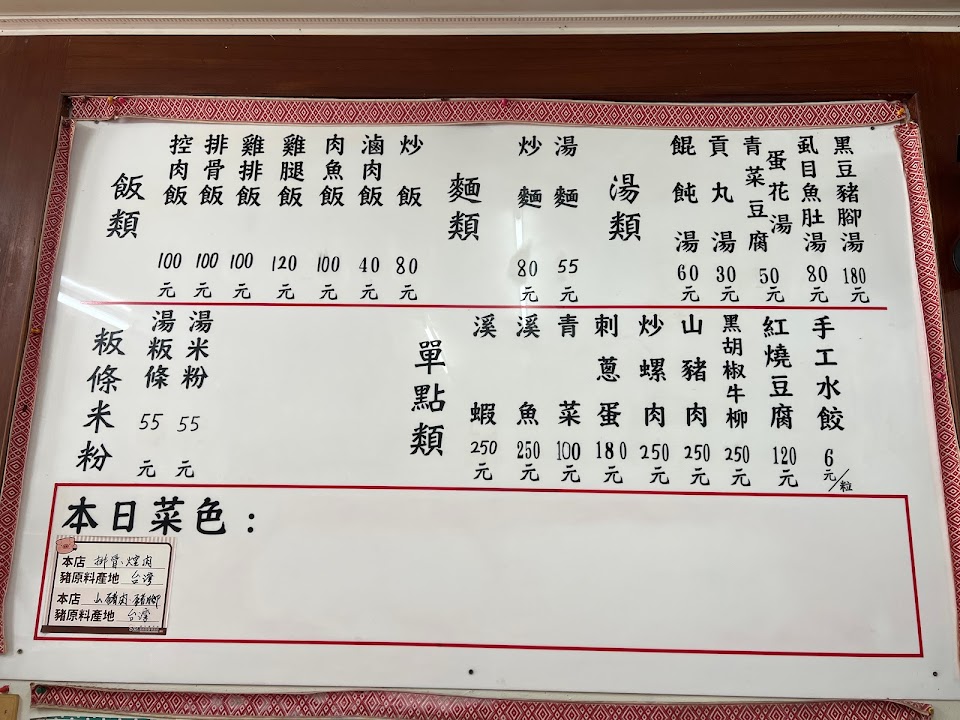 飯類
控肉飯 100元
排骨飯 100元
雞排飯 100元
雞腿飯 120元
肉魚飯 100元
滷肉飯 40元
炒飯 80元
麵類
炒麵 80元
湯麵 55元
湯類
餛飩湯 60元
貢丸湯 30元
青菜豆腐蛋花湯 50元
虱目魚肚湯 80元
黑豆豬腳湯 180元
粄條米粉
湯粄條 55元
湯米粉 55元
單點類
溪蝦 250元
溪魚 250元
青菜 100元
刺蔥蛋 180元
炒螺肉 250元
山豬肉 250元
黑胡椒牛柳 250元
紅燒豆腐 120元
手工水餃 6元/粒
本日菜色：
本店 排骨、焢肉
豬原料產地 台灣
本店 山豬肉、豬腳
豬原料產地 台灣